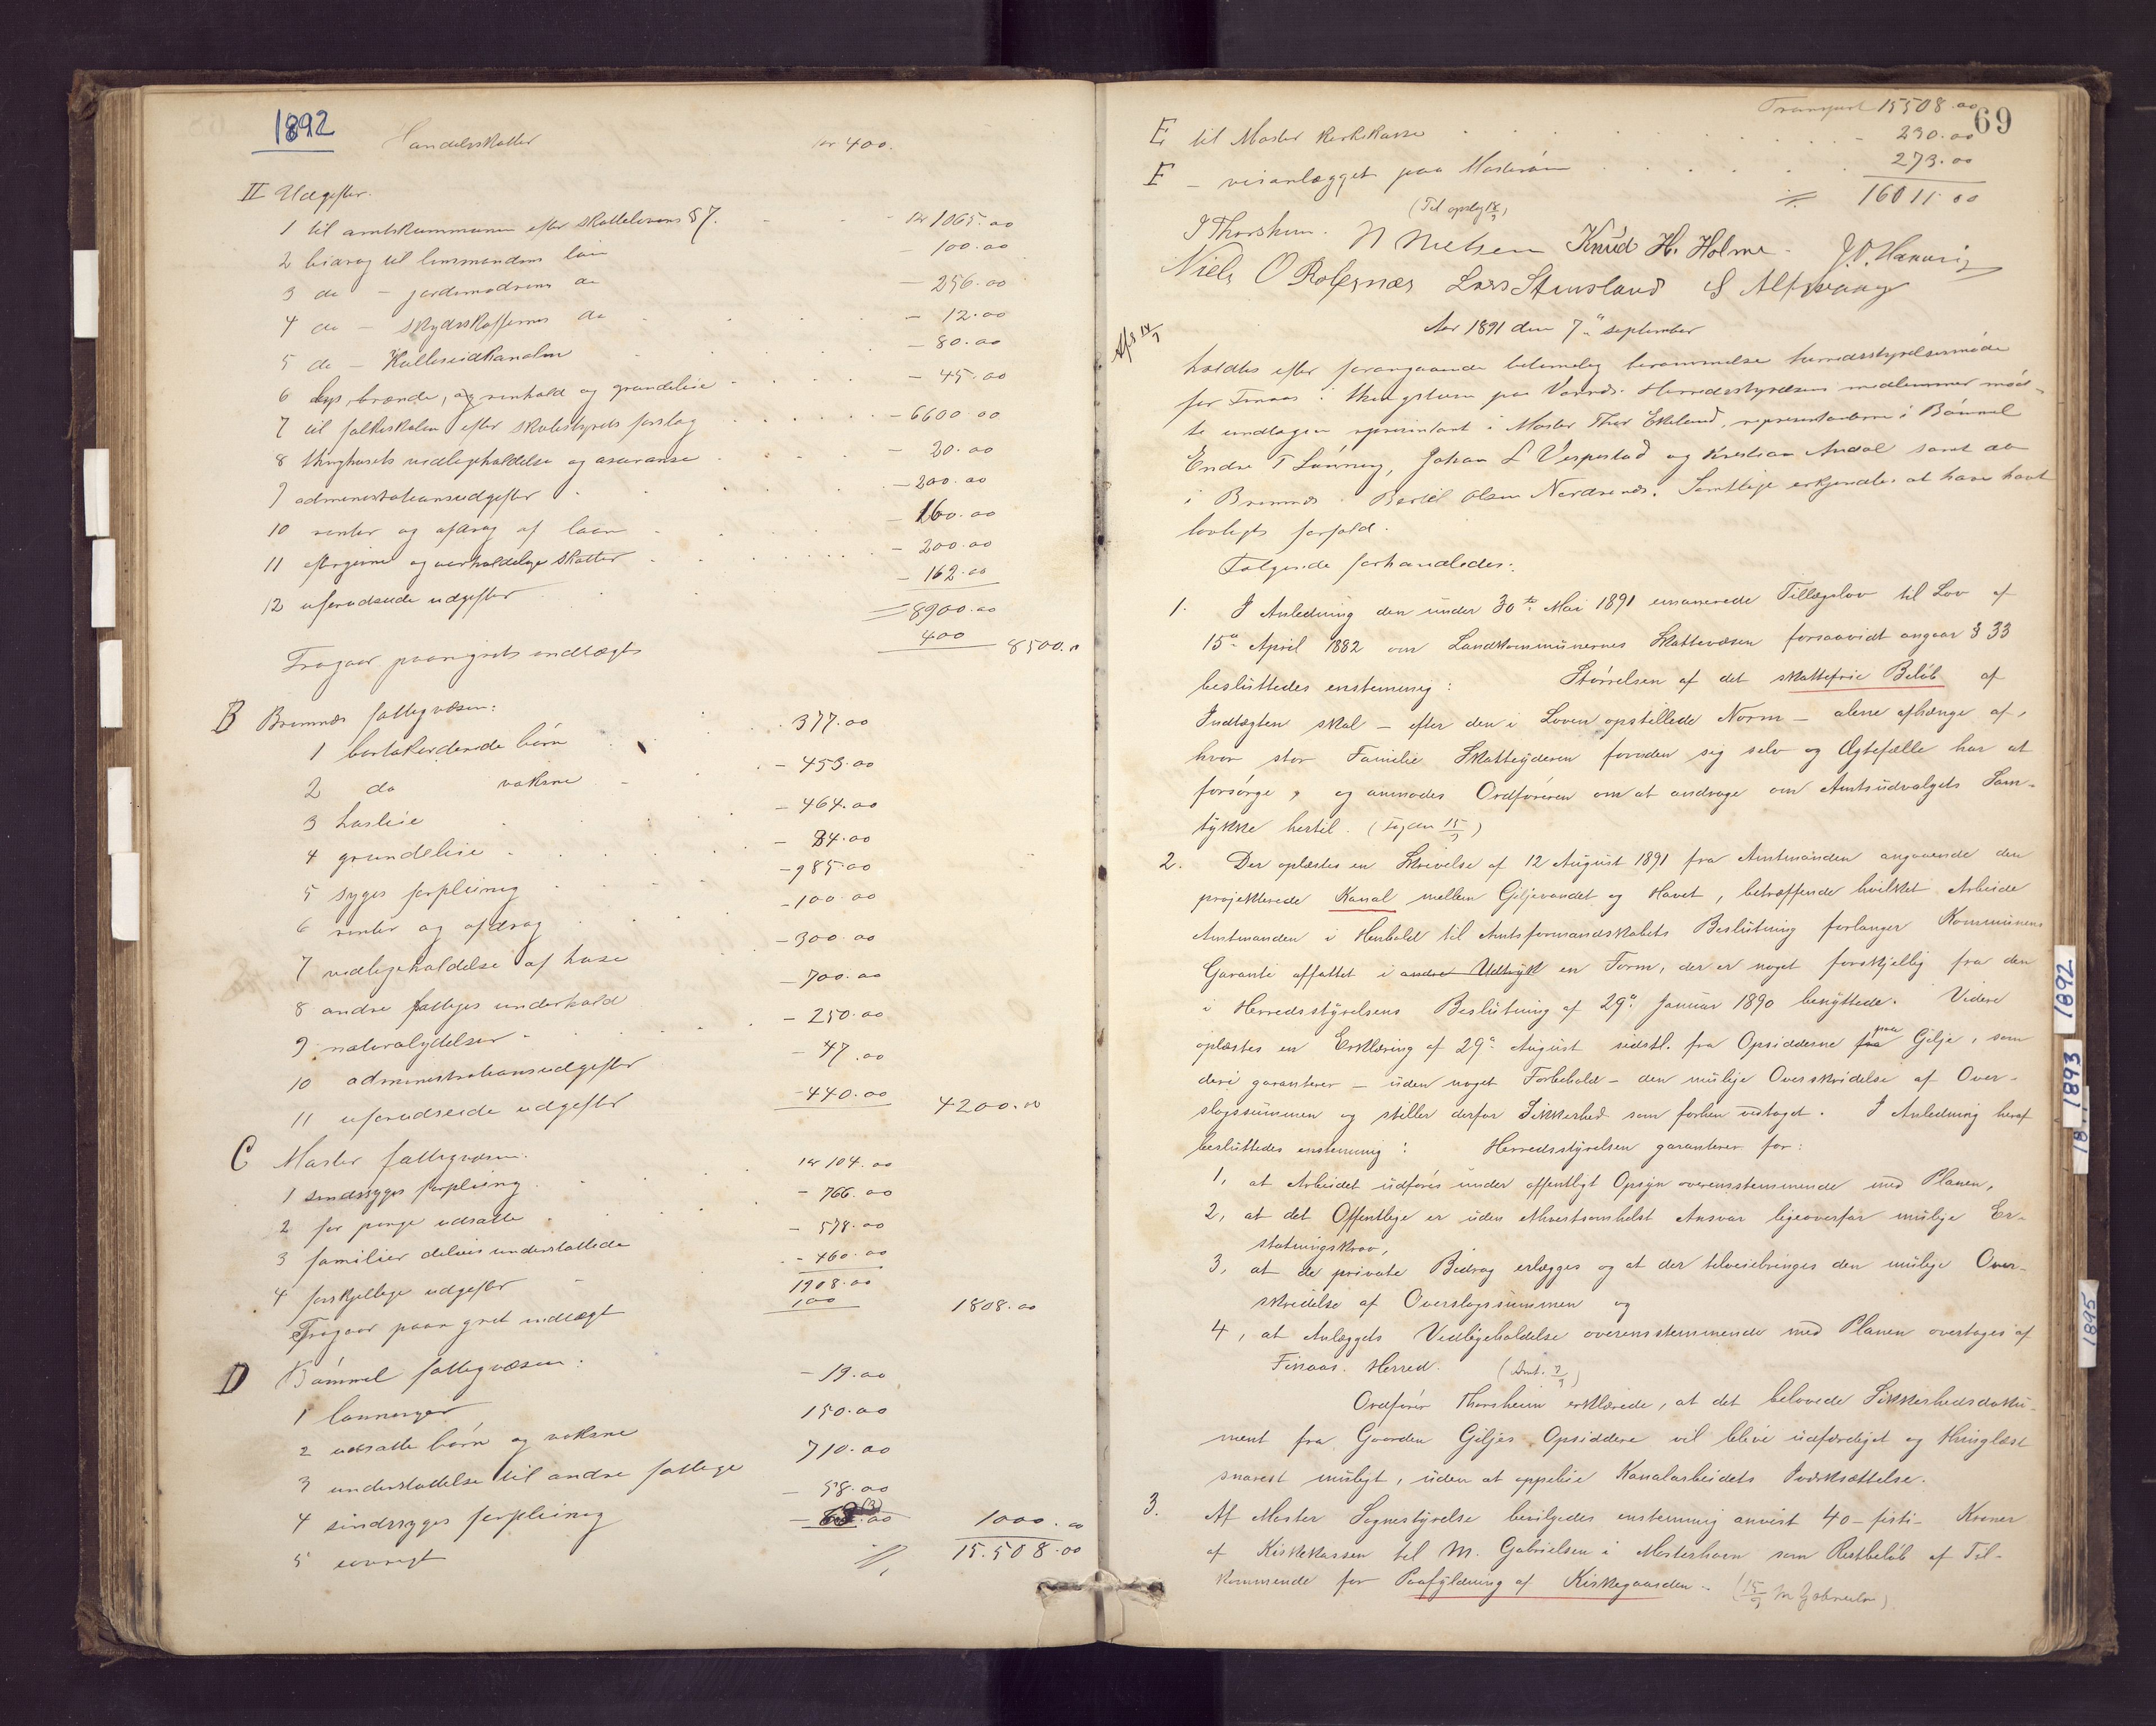 1892
Handelsskatter kr 400.
II Udgifter.
1 til amtskommunen efter skattelovens § 7. - kr 1065.00
2 bidrag til lensmandens løn - 100.00
3 do - jordmødrenes do - 256.00
4 do - skydsskaffernes do - 12.00
5 do - Kulleseidkanalen - 80.00
6 lys, brænde, og renhold og grundeleie - 45.00
7 til folkeskolen efter skolestyrets forslag - 6600.00
8 thinghusets vedligeholdelse og asuranse - 20.00
9 administrationsudgifter - 200.00
10 renter og afdrag af laan - 160.00
11 eftergivne og uerholdelige skatter - 200.00
12 uforudseede udgifter - 162.00
= 8900.00
Fragaar paaregnet indtægt 400 8500.00
B Bremnes fattigvæsen:
1 bortakorderede børn - 377.00
2 do voksne - 453.00
3 husleie - 464.00
4 grundeleie - 84.00
5 syges forpleining - 985.00
6 renter og afdrag - 100.00
7 vedligeholdelse af huse - 300.00
8 andre fattiges underhold - 700.00
9 naturalydelser - 250.00
10 administrationsudgifter - 47.00
11 uforudseede udgifter - 440.00 4200.00
C Moster fattigvæsen.
1 sindssyges forpleining kr 104.00
2 for penge udsatte - 766.00
3 familier delvis understøttede - 578.00
4 forskjellige udgifter - 460.00
1908.00
Fragaar paaregnet indtægt 100 1808.00
D Bømmel fattigvæsen:
1 lønninger - 19.00
2 udsatte børn og voksne 150.00
3 understøttelse til andre fattige 710.00
4 sindssyges forpleining - 58.00
5 uvrigt - 63.00 1000.00
15.508.00
Transport 15508.00
69
E til Moster kirkekasse - 230.00
F - veianlægget paa Mosterøen 273.00
16011.00
(Til opslag 15/9)
J Thorsheim. N Nielsen Knud H. Holme. J.O. Hanevig
Niels O Rolfsnes Lars Stensland S Alfsvaag
Afs 14/9
Aar 1891 den 7de september
holdtes efter forangaaende betimelig berammelse herredsstyrelsesmøde
for Finaas i thingstuen paa Vorneds. Herredsstyrelsens medlemmer mød-
te undtagen representant i Moster Thor Ekeland, representanterne i Bømmel
Endre T Lønning, Johan L Vespestad og Kristian Andal samt do
i Bremnes Bertel Olsen Nordrenes. Samtlige erkjendtes at have havt
lovligt forfald.
Følgende forhandledes:
1. I Anledning den under 30te Mai 1891 emanerede Tillægslov til Lov af
15de April 1882 om Landkommunernes Skattevæsen forsaavidt angaar § 33
besluttedes enstemmig: Størrelsen af det skattefrie Beløb af
Indtægten skal - efter den i Loven opstillede Norm - alene afhænge af,
hvor stor Familie Skatteyderen foruden sig selv og Ægtefælle har at
forsørge, og anmodes Ordføreren om at andrage om Amtsudvalgets Sam-
tykke hertil. (Fogden 15/9)
2. Der oplæstes en Skrivelse af 12 August 1891 fra Amtmanden angaaende den
projekterede Kanal mellem Giljevandet og Havet, betræffende hvilket Arbeide
Amtmanden i Henhold til Amtsformandskabets Beslutning forlanger Kommunens
Garanti affattet i andre Udtryk en Form, der er noget forskjellig fra den
i Herredsstyrelsens Beslutning af 29de Januar 1890 benyttede. Videre
oplæstes en Erklæring af 29de August sidstl. fra Opsidderne fra paa Gilje, som
deri garanterer - uden noget Forbehold - den mulige Overskridelse af Over-
slagssummen og stiller derfor Sikkerhed som forhen vedtaget. I Anledning heraf
besluttedes enstemmig: Herredsstyrelsen garanterer for:
1, at Arbeidet udføres under offentligt Opsyn overensstemmende med Planen,
2, at det Offentlige er uden ethvertsomhelst Ansvar ligeoverfor mulige Er-
statningskrav,
3, at de private Bidrag erlægges og at der tilveiebringes den mulige Over-
skridelse af Overslagssummen og
4, at Anlæggets Vedligeholdelse overensstemmende med Planen overtages af
Finaas Herred. (Amt. 7/9)
Ordfører Thorsheim erklærede, at det belovede Sikkerhedsdoku-
ment fra Gaarden Giljes Opsiddere vil blive udfærdiget og thinglæst
snarest muligt, uden at oppebie Kanalarbeidets Iværksættelse.
3. Af Moster Sognestyrelse bevilgedes enstemmig anvist 40 - firti - Kroner
af Kirkekassen til M. Gabrielsen i Mosterhavn som Restbeløb af Til-
kommende for Paafyldning af Kirkegaarden. (15/9 M Gabrielsen)
1892
1893
18
1895